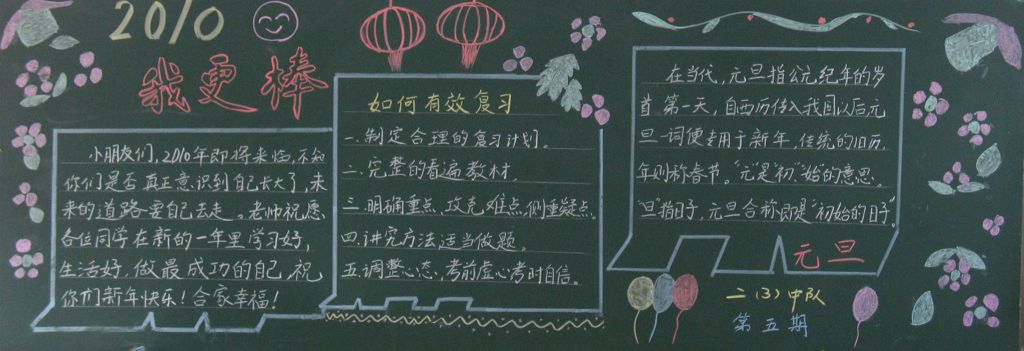 2010
我更棒
小朋友们，2010年即将来临，不知
你们是否真正意识到自己长大了，未
来的道路要自己去走。老师祝愿
各位同学在新的一年里学习好，
生活好，做最成功的自己，祝
你们新年快乐！合家幸福！
如何有效复习
一、制定合理的复习计划。
二、完整的看遍教材.
三.明确重点，攻克难点，侧重疑点.
四.讲究方法适当做题。
五.调整心态，考前虚心考时自信。
在当代，元旦指公元纪年的岁
首第一天，自西历传入我国以后元
旦一词便专用于新年，传统的旧历
年则称春节。“元”是“初”“始”的意思。
“旦”指日子，元旦合称即是“初始的日子”
元旦
二（3）中队
第五期